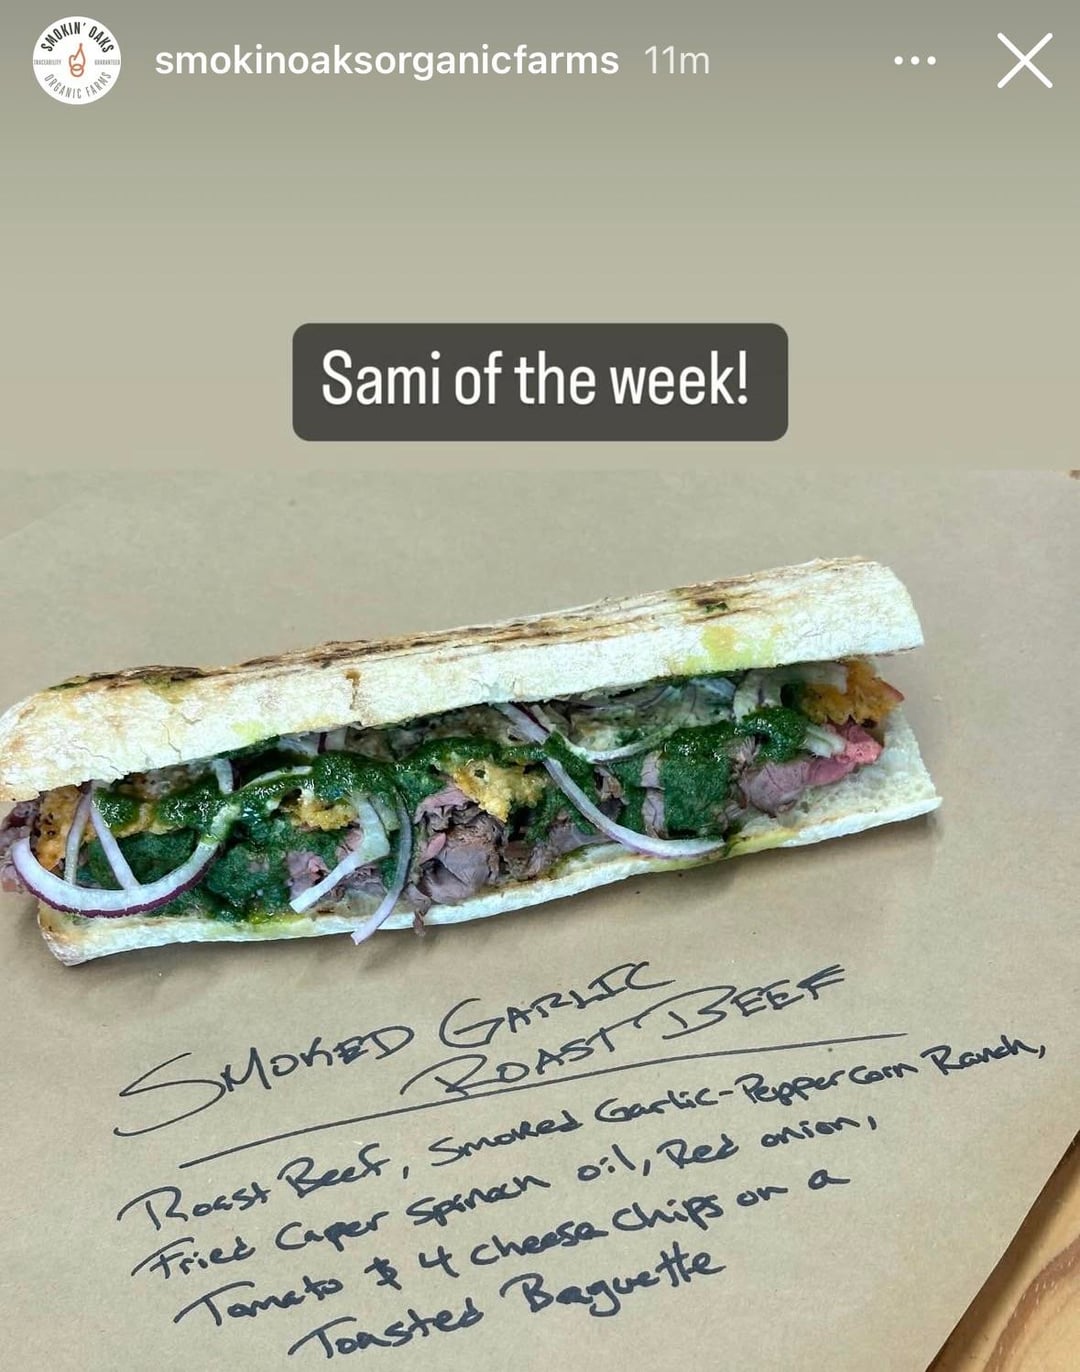 SMOKIN' OAKS
TRACEABILITY GUARANTEED
ORGANIC FARMS
smokinoaksorganicfarms 11m
Sami of the week!
SMOKED GARLIC
ROAST BEEF
Roast Beef, Smoked Garlic-Peppercorn Ranch,
Fried Caper Spinach oil, Red onion,
Tomato & 4 cheese chips on a
Toasted Baguette